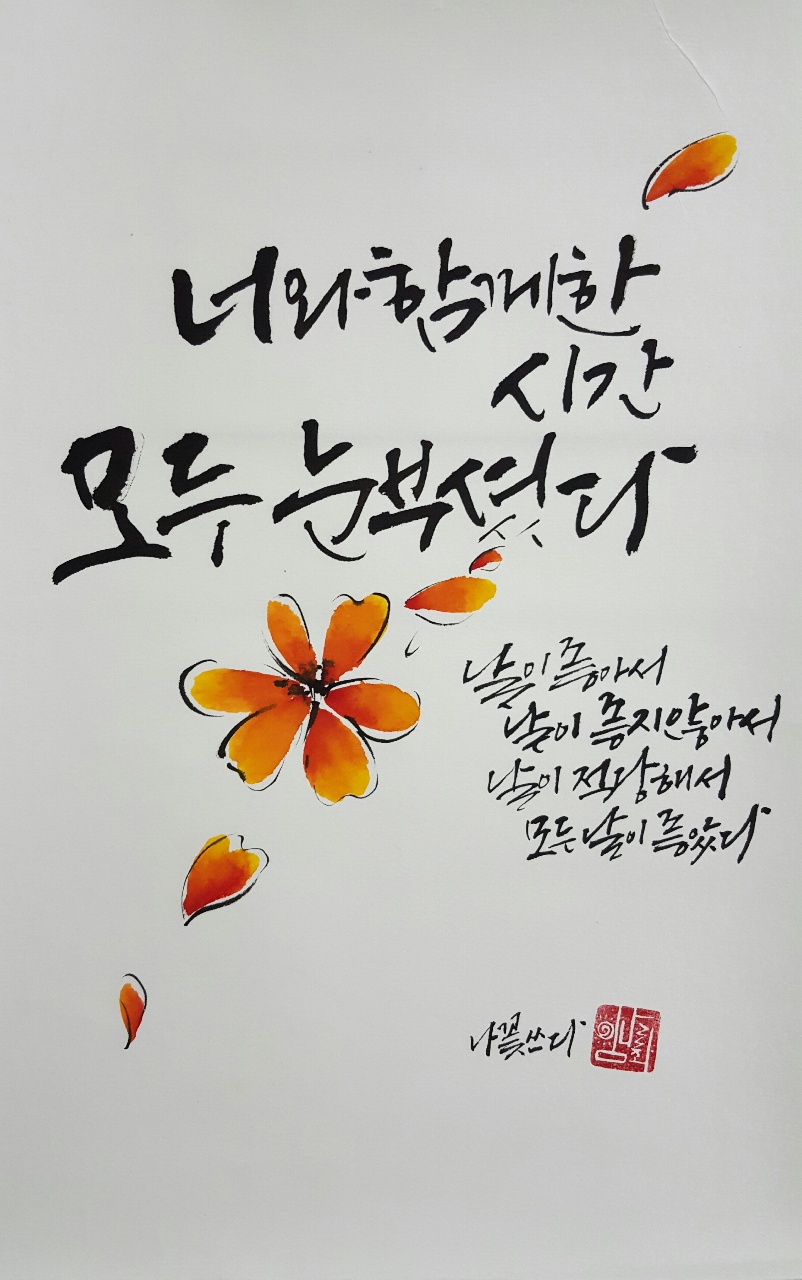 너와 함께한
시간
모두 눈부셨다
날이 좋아서
날이 좋지 않아서
날이 적당해서
모든 날이 좋았다
나꽃쓰다